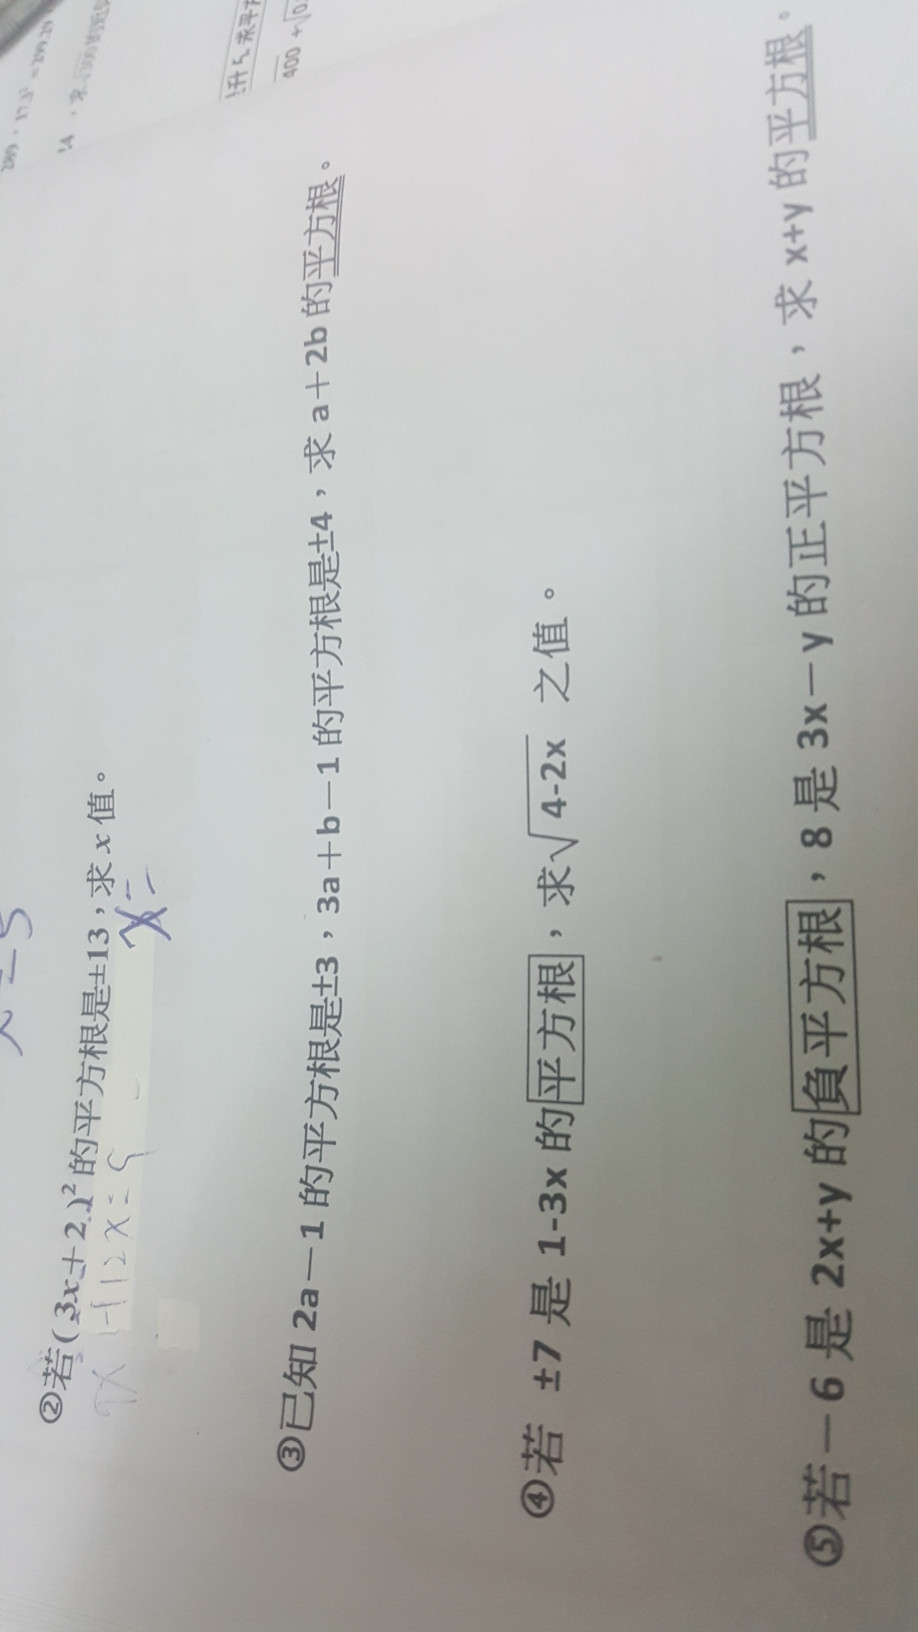 289，17.3²＝299.29
14，求
求平方
400 +√0.
②若(3x+2)²的平方根是±13，求x值。
12x=
x=
③已知 2a－1 的平方根是±3，3a＋b－1 的平方根是±4，求 a＋2b 的平方根。
④若 ±7 是 1-3x 的平方根，求√4-2x 之值。
⑤若－6 是 2x+y 的負平方根，8 是 3x－y 的正平方根，求 x+y 的平方根。